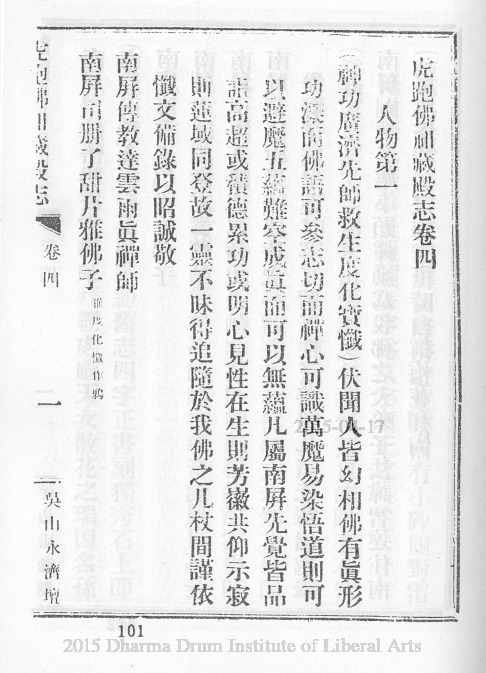 虎跑佛祖藏殿志卷四
人物第一
(禪功廣濟先師救生度化寶懺)伏聞人皆幻相佛有眞形
功深而佛諦可參志切而禪心可識萬魔易染悟道則可
以避魔五蘊難空成眞而可以無蘊凡屬南屏先覺皆品
詣高超或積德累功或明心見性在生則芳徽共仰示寂
則蓮域同登故一靈不昧得追隨於我佛之几杖間謹依
懺文備錄以昭誠敬
南屏傳教達雲雨眞禪師
南屏司册了甜片雅佛子 雅度化懺作鴉
虎跑佛祖藏殿志
卷四
一
吳山永濟壇
101
2015 Dharma Drum Institute of Liberal Arts